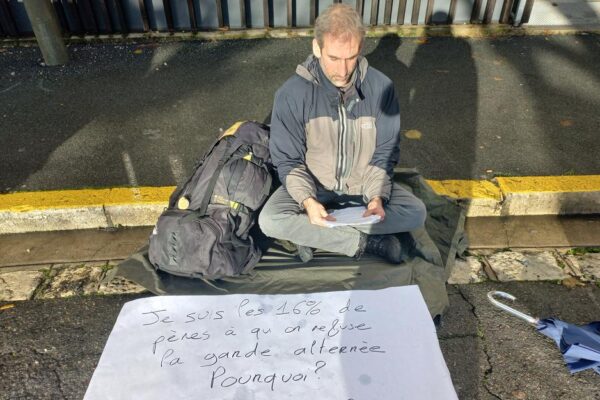 Je suis les 16% de
pères à qui on refuse
la garde alternée
Pourquoi?